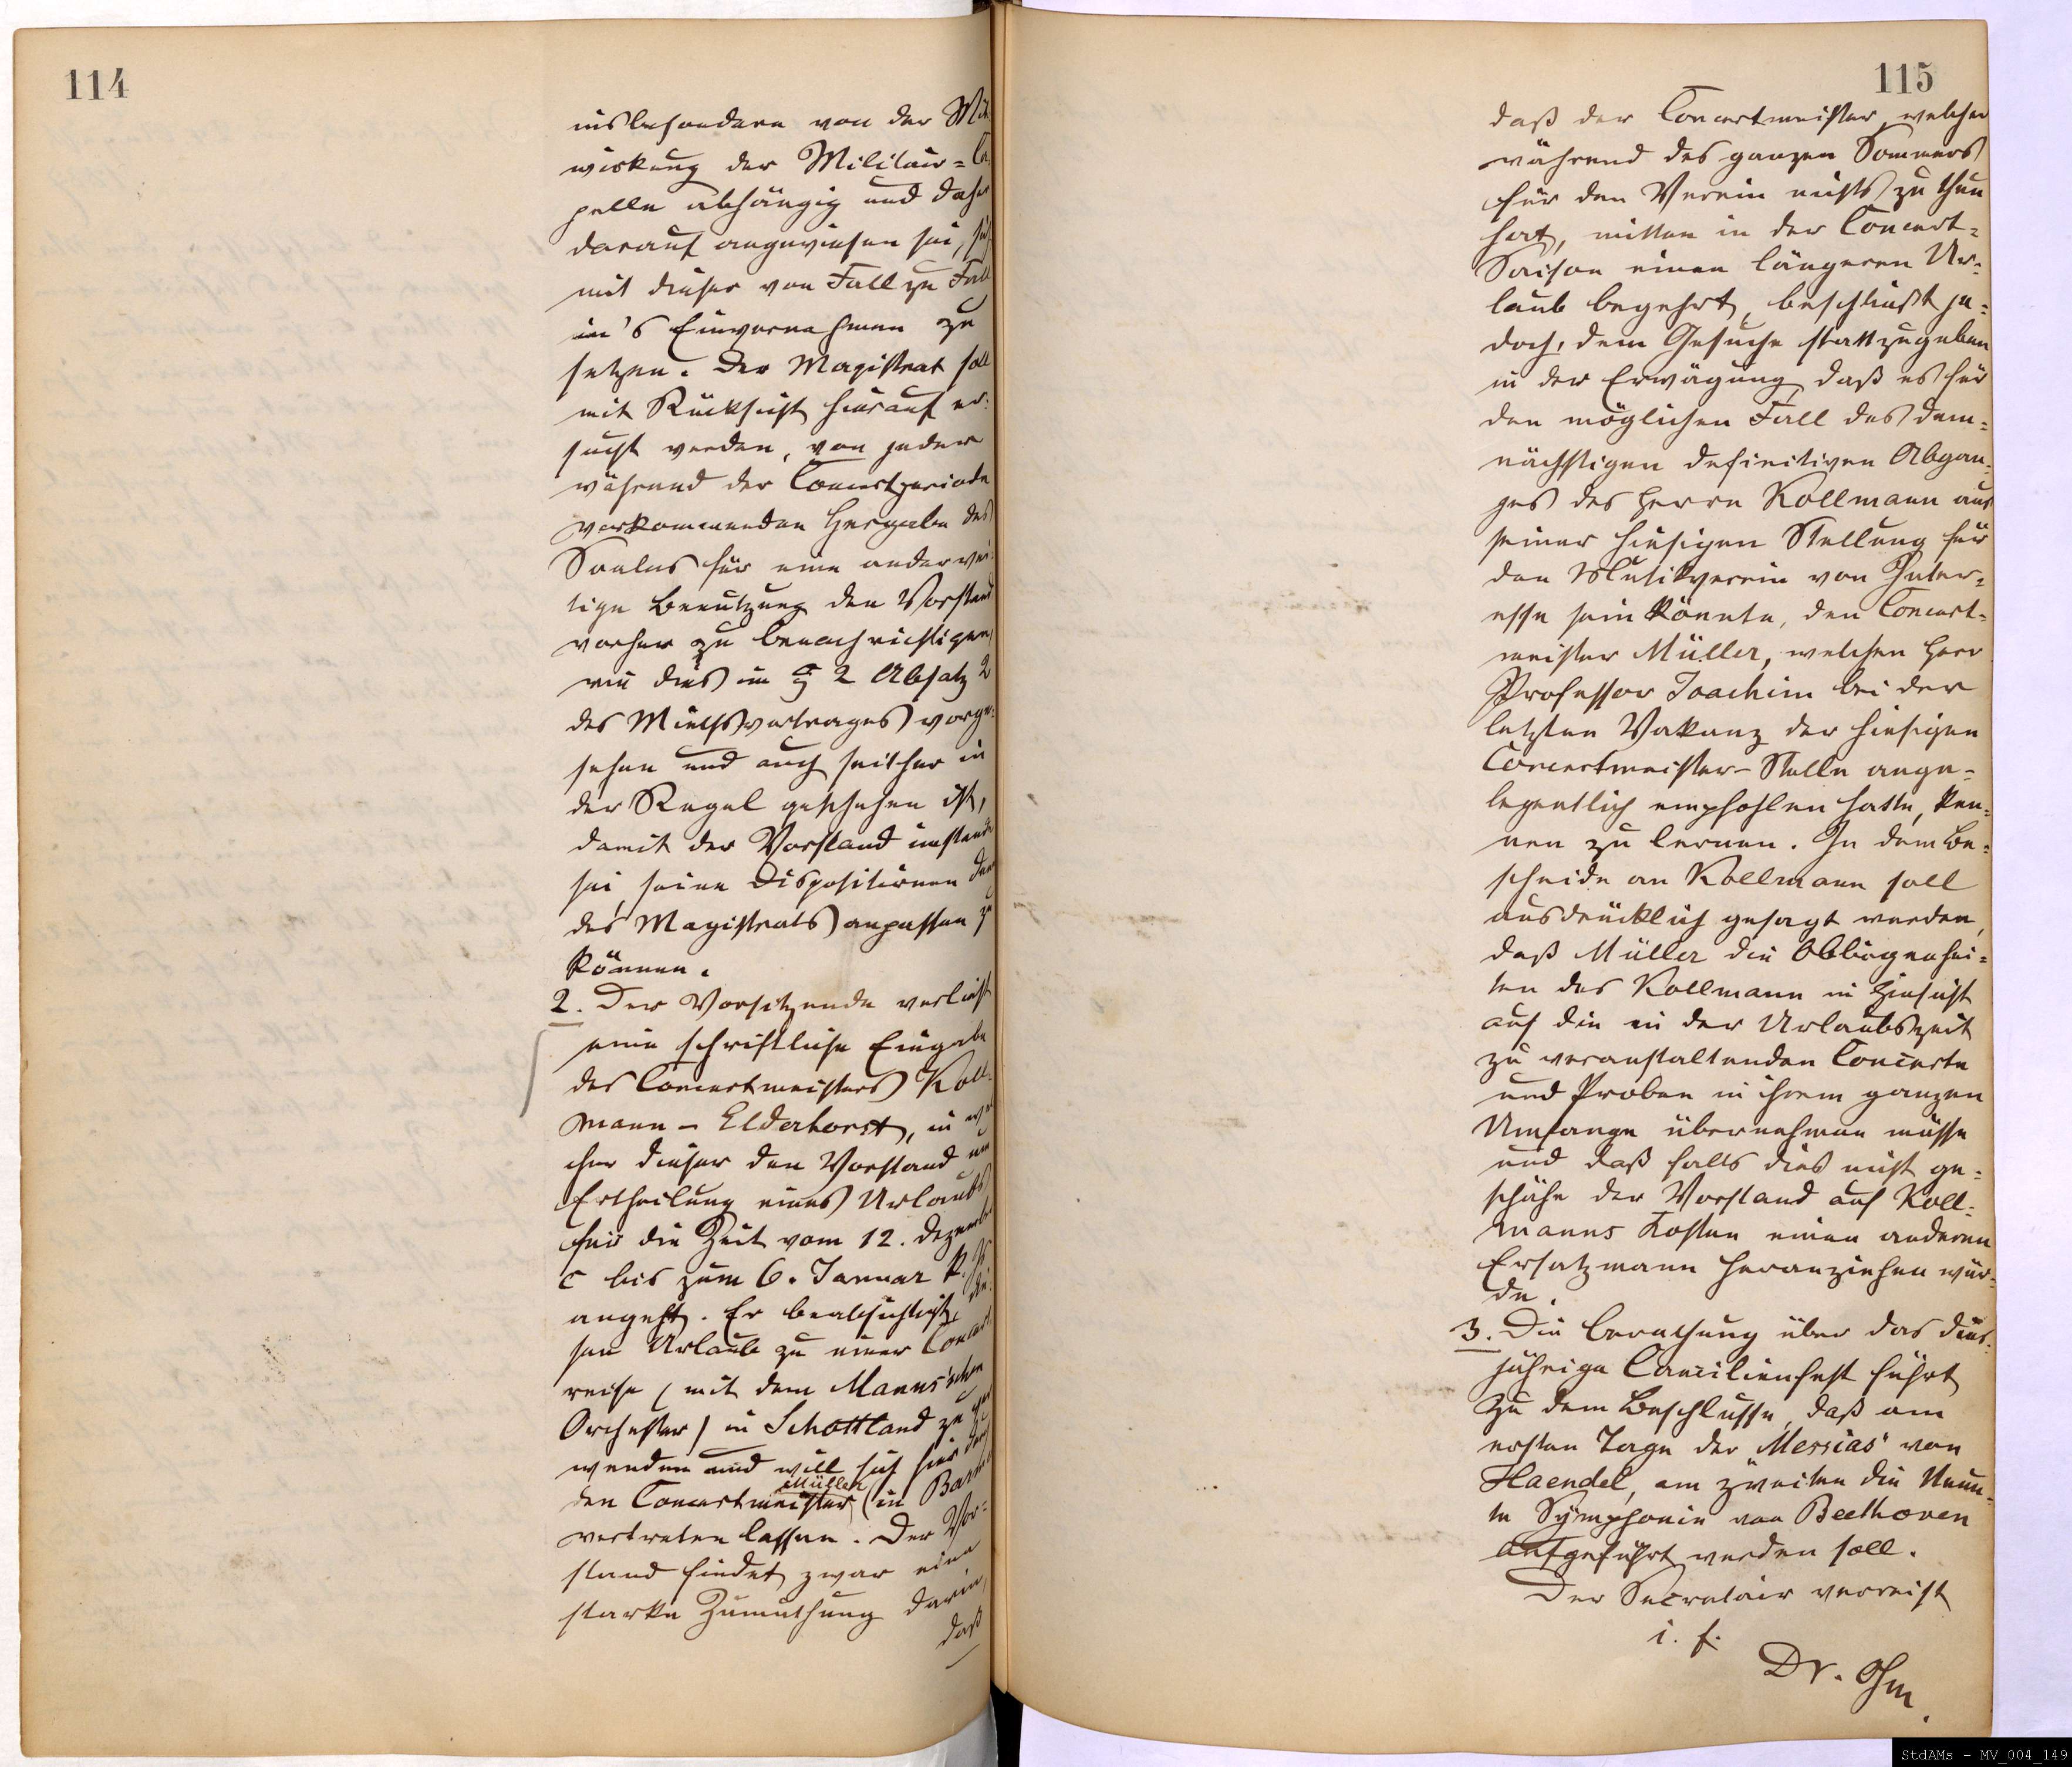 114
insbesondere von der Mit
wirkung der Militair-Ca
pelle abhängig und daher
darauf angewiesen sei, sich
mit dieser von Fall zu Fall
in's Einvernehmen zu
setzen. Der Magistrat soll
mit Rücksicht hierauf er-
sucht werden, von jeder
während der Concertperiode
vorkommenden Hergabe des
Saales für eine anderwei
tige Benutzung den Vorstand
vorher zu benachrichtigen,
wie dies im § 2 Absatz 2
des Miethsvertrages vorge-
sehen und auch seither in
der Regel geschehen ist,
damit der Vorstand imstande
sei, seine Dispositionen den
des Magistrats anpassen zu
können.
2. Der Vorsitzende verliest
eine schriftliche Eingabe
des Concertmeisters Koll-
mann-Elderhorst, in wel
cher dieser den Vorstand um
Ertheilung eines Urlaubs
für die Zeit vom 12. Dezember
c bis zum 6. Januar k. Js
angeht. Er beabsichtigt, die-
sen Urlaub zu einer Concert
reise (mit dem Manns'schen
Orchester) in Schottland zu ver
wenden und will sich hier durch
den Concertmeister Müller (in Barm
vertreten lassen. Der Vor-
stand findet zwar eine
starke Zumuthung darin,
daß
115
daß der Concertmeister, welcher
während des ganzen Sommers
für den Verein nichts zu thun
hat, mitten in der Concert-
Saison einen längeren Ur-
laub begehrt, beschließt je-
doch, dem Gesuche stattzugeben
in der Erwägung, daß es für
den möglichen Fall des dem-
nächstigen definitiven Abgan-
ges des Herrn Kollmann aus
seiner hiesigen Stellung für
den Musikverein von Inter-
esse sein könnte, den Concert-
meister Müller, welchen Herr
Professor Joachim bei der
letzten Vakanz der hiesigen
Concertmeister-Stelle ange-
legentlich empfohlen hatte, ken-
nen zu lernen. In dem Be-
scheide an Kollmann soll
ausdrücklich gesagt werden,
daß Müller die Obliegenhei-
ten des Kollmann in Hinsicht
auf die in der Urlaubszeit
zu veranstaltenden Concerte
und Proben in ihrem ganzen
Umfange übernehmen müsse
und daß falls dies nicht ge-
schähe der Vorstand auf Koll-
manns Kosten einen anderen
Ersatzmann heranziehen wür-
de.
3. Die Berathung über das dies-
jährige Caecilienfest führt
zu dem Beschlusse, daß am
ersten Tage der „Messias" von
Haendel, am zweiten die Neun-
te Symphonie von Beethoven
aufgeführt werden soll.
Der Secretair verreist
i. f.
Dr. Ohm.
StdAMs - MV_004_149